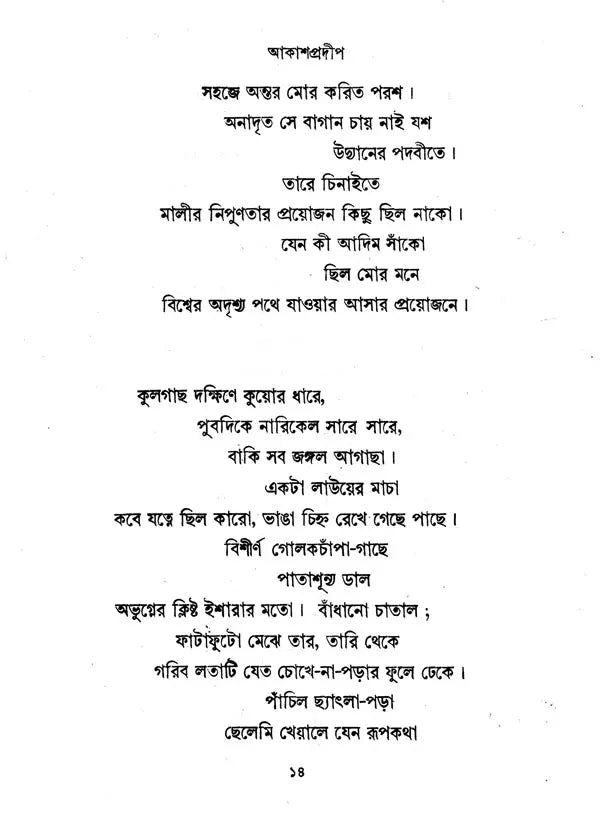 আকাশপ্রদীপ
সহজে অন্তর মোর করিত পরশ।
অনাদৃত সে বাগান চায় নাই যশ
উদ্যানের পদবীতে।
তারে চিনাইতে
মালীর নিপুণতার প্রয়োজন কিছু ছিল নাকো।
যেন কী আদিম সাঁকো
ছিল মোর মনে
বিশ্বের অদৃশ্য পথে যাওয়ার আসার প্রয়োজনে।
কুলগাছ দক্ষিণে কুয়োর ধারে,
পুবদিকে নারিকেল সারে সারে,
বাকি সব জঙ্গল আগাছা।
একটা লাউয়ের মাচা
কবে যত্নে ছিল কারো, ভাঙা চিহ্ন রেখে গেছে পাছে।
বিশীর্ণ গোলকচাঁপা-গাছে
পাতাশূন্য ডাল
অভুগ্নের ক্লিষ্ট ইশারার মতো। বাঁধানো চাতাল;
ফাটাফুটো মেঝে তার, তারি থেকে
গরিব লতাটি যেত চোখে-না-পড়ার ফুলে ঢেকে।
পাঁচিল ছ্যাৎলা-পড়া
ছেলেমি খেয়ালে যেন রূপকথা
১৪